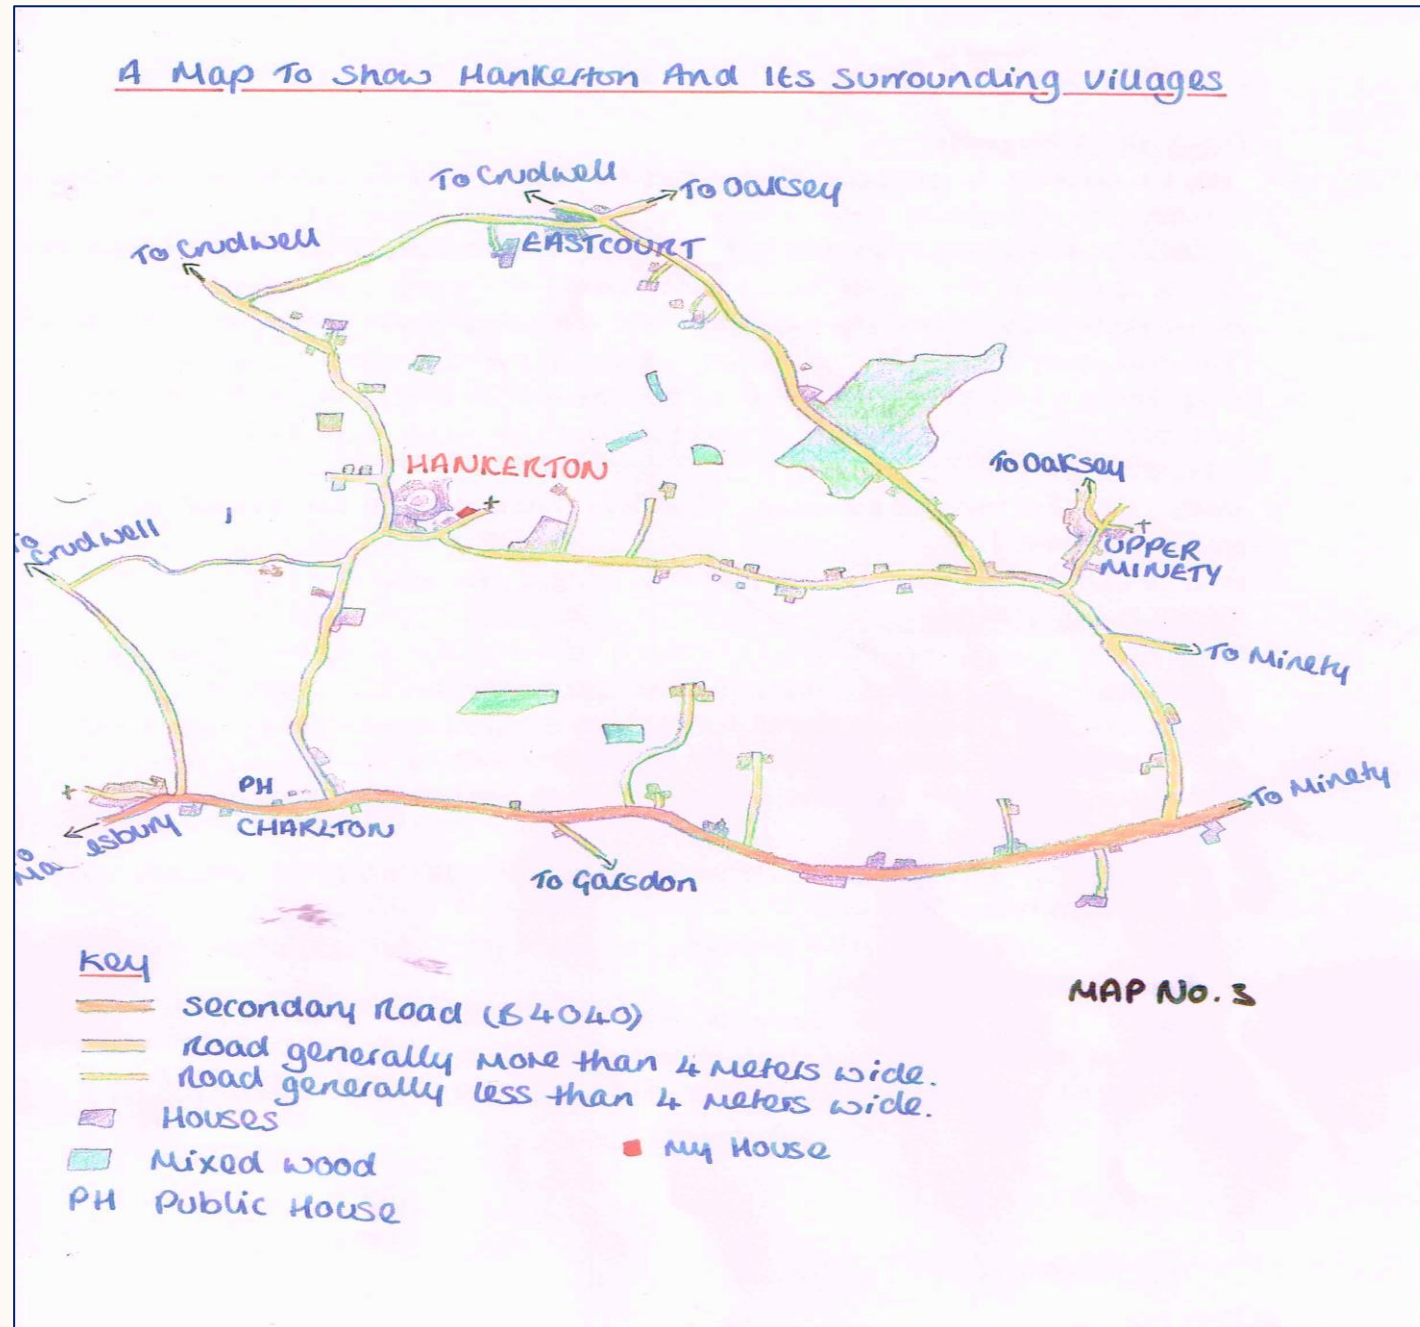 A Map To Show Hankerton And Its Surrounding Villages
To Crudwell
To Oaksey
To Crudwell
EASTCOURT
HANKERTON
To Oaksey
To
Crudwell
UPPER
MINETY
To Minety
To Minety
PH
CHARLTON
To
Ma esbury
To Garsdon
Key
Secondary Road (B4040)
Road generally more than 4 meters wide.
Road generally less than 4 meters wide.
Houses
My House
Mixed wood
PH Public House
MAP No. 3